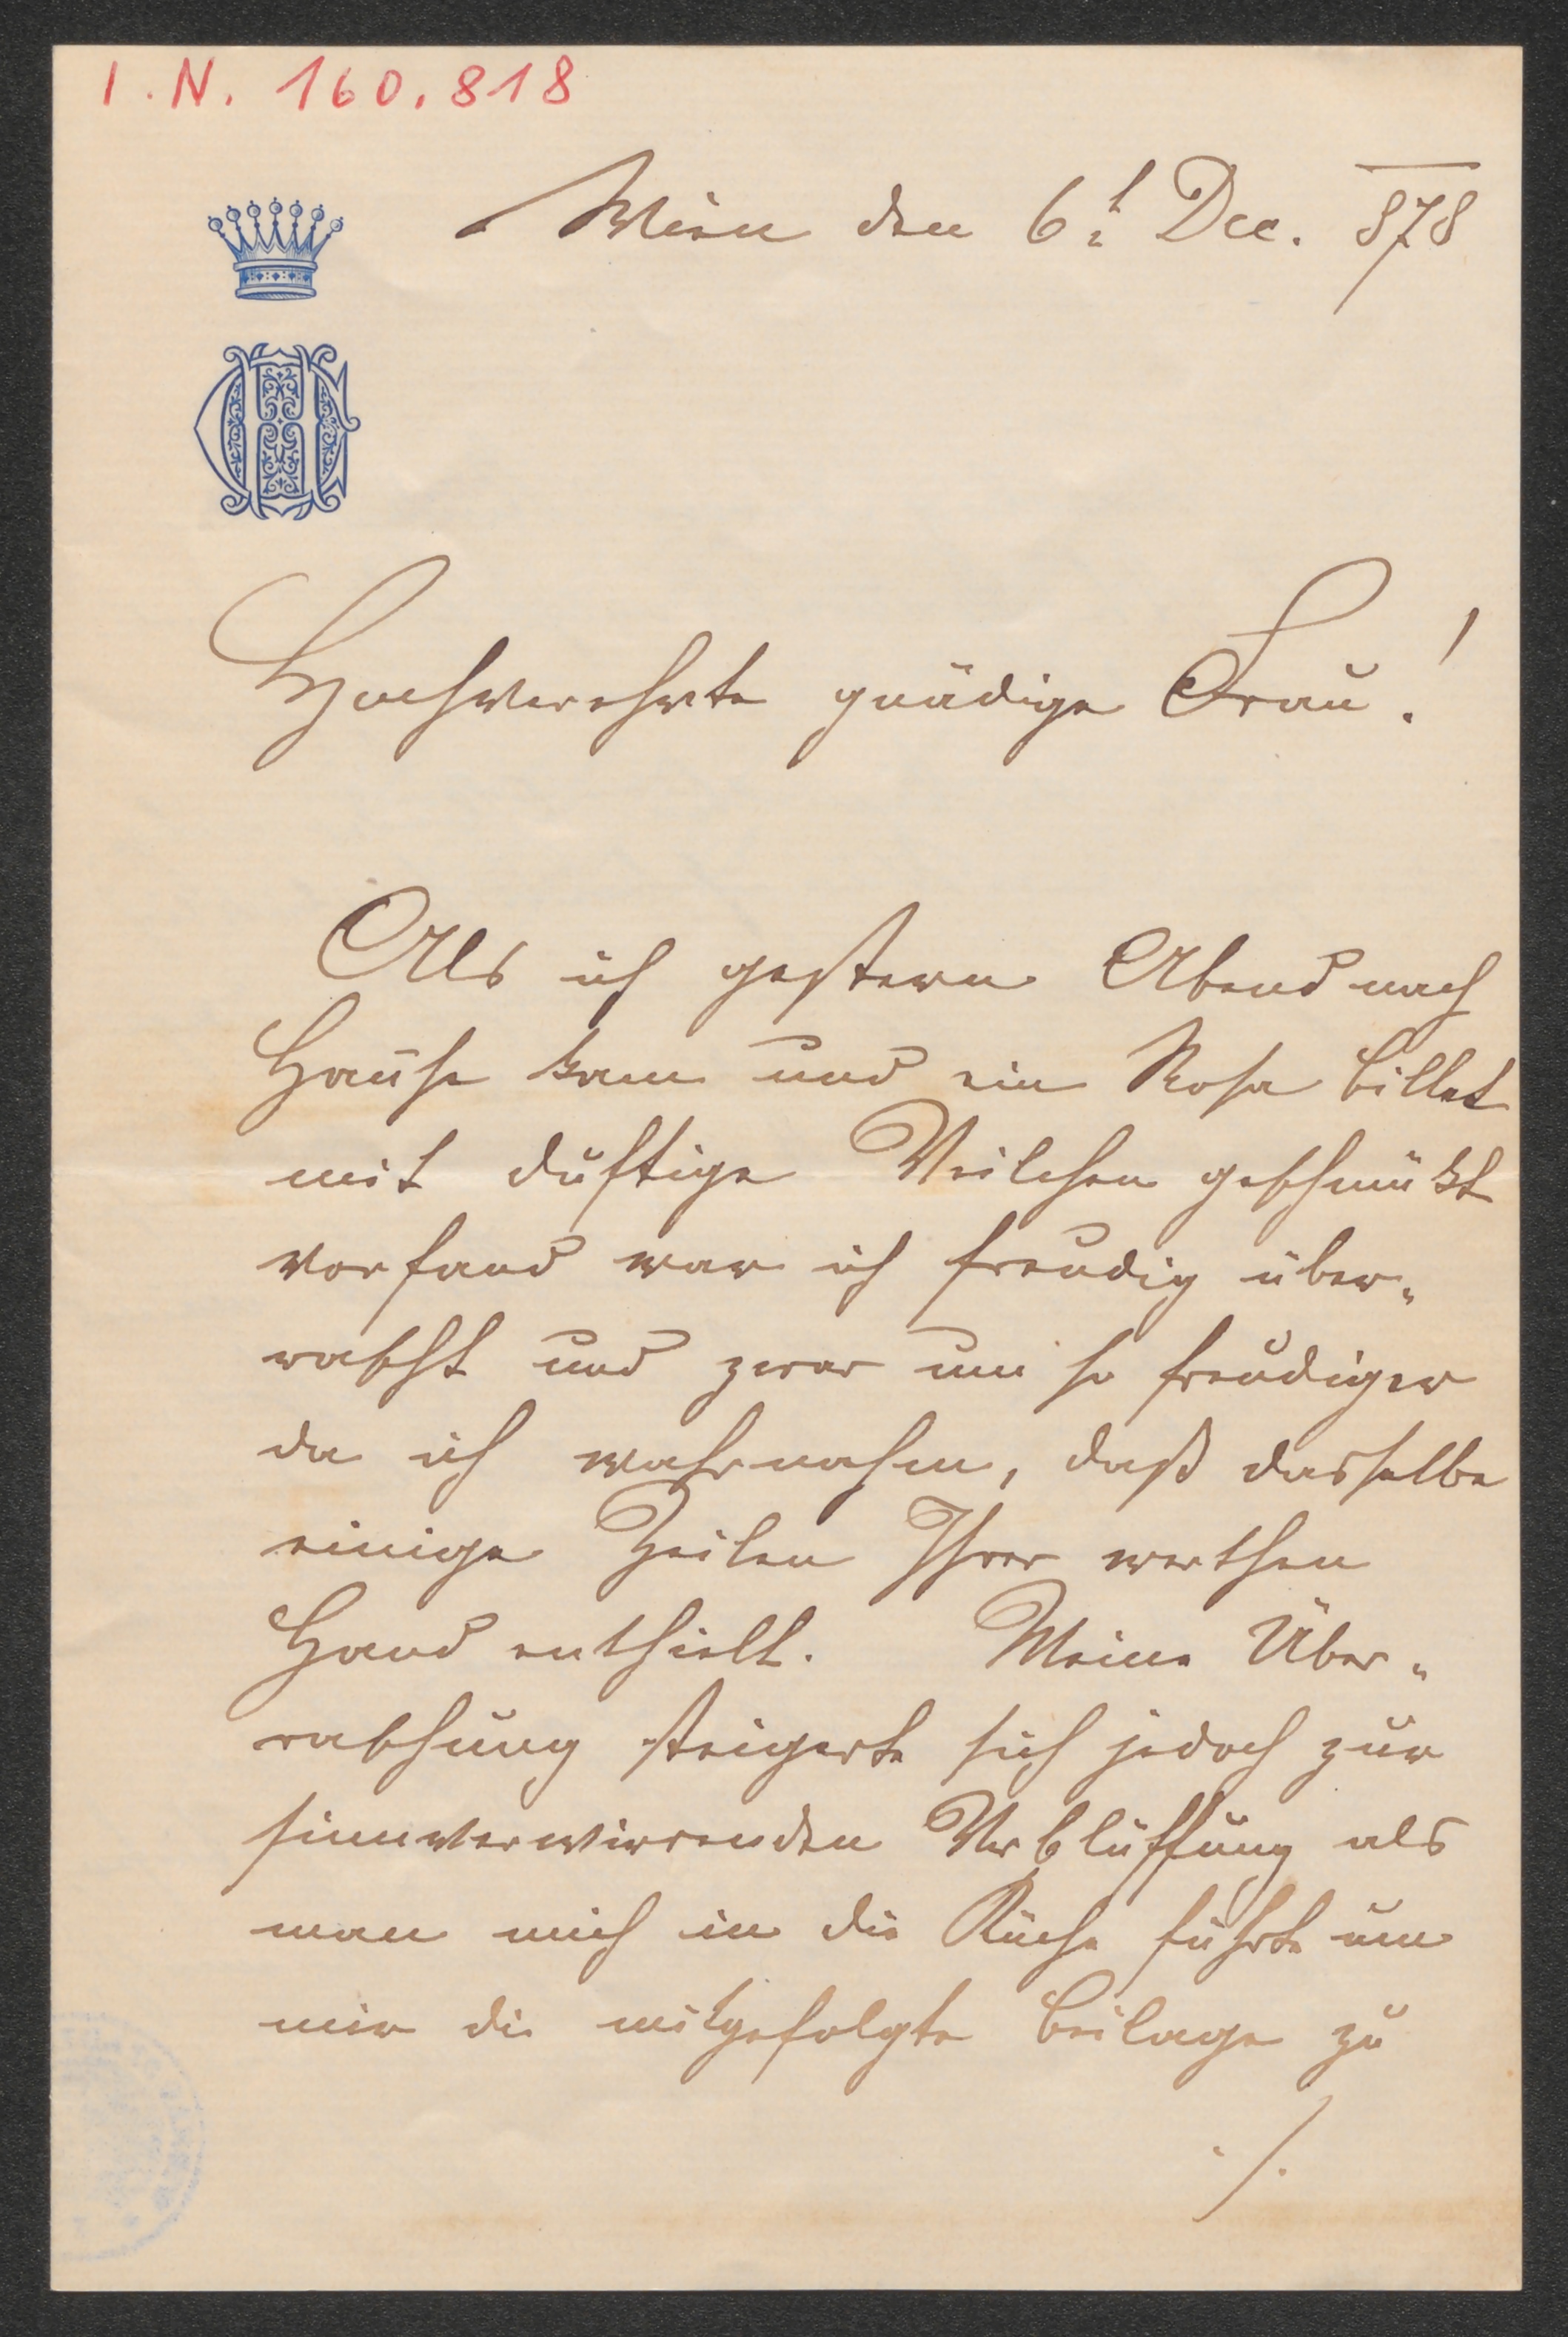 I.N. 160.818
Wien den 6t Dec. 878
Hochverehrte gnädige Frau!
Als ich gestern Abend nach
Hause kam und ein Rosa billet
mit duftige Veilchen geschmükt
vorfand war ich freudig über„
rascht und zwar um so freudiger
da ich wahrnahm, daß dasselbe
einige Zeilen Ihrer werthen
Hand enthielt. Meine Über„
raschung steigerte sich jedoch zur
sinnverwirrenden Verblüffung als
man mich in die Küche führte um
mir die mitgefolgte Beilage zu
./.